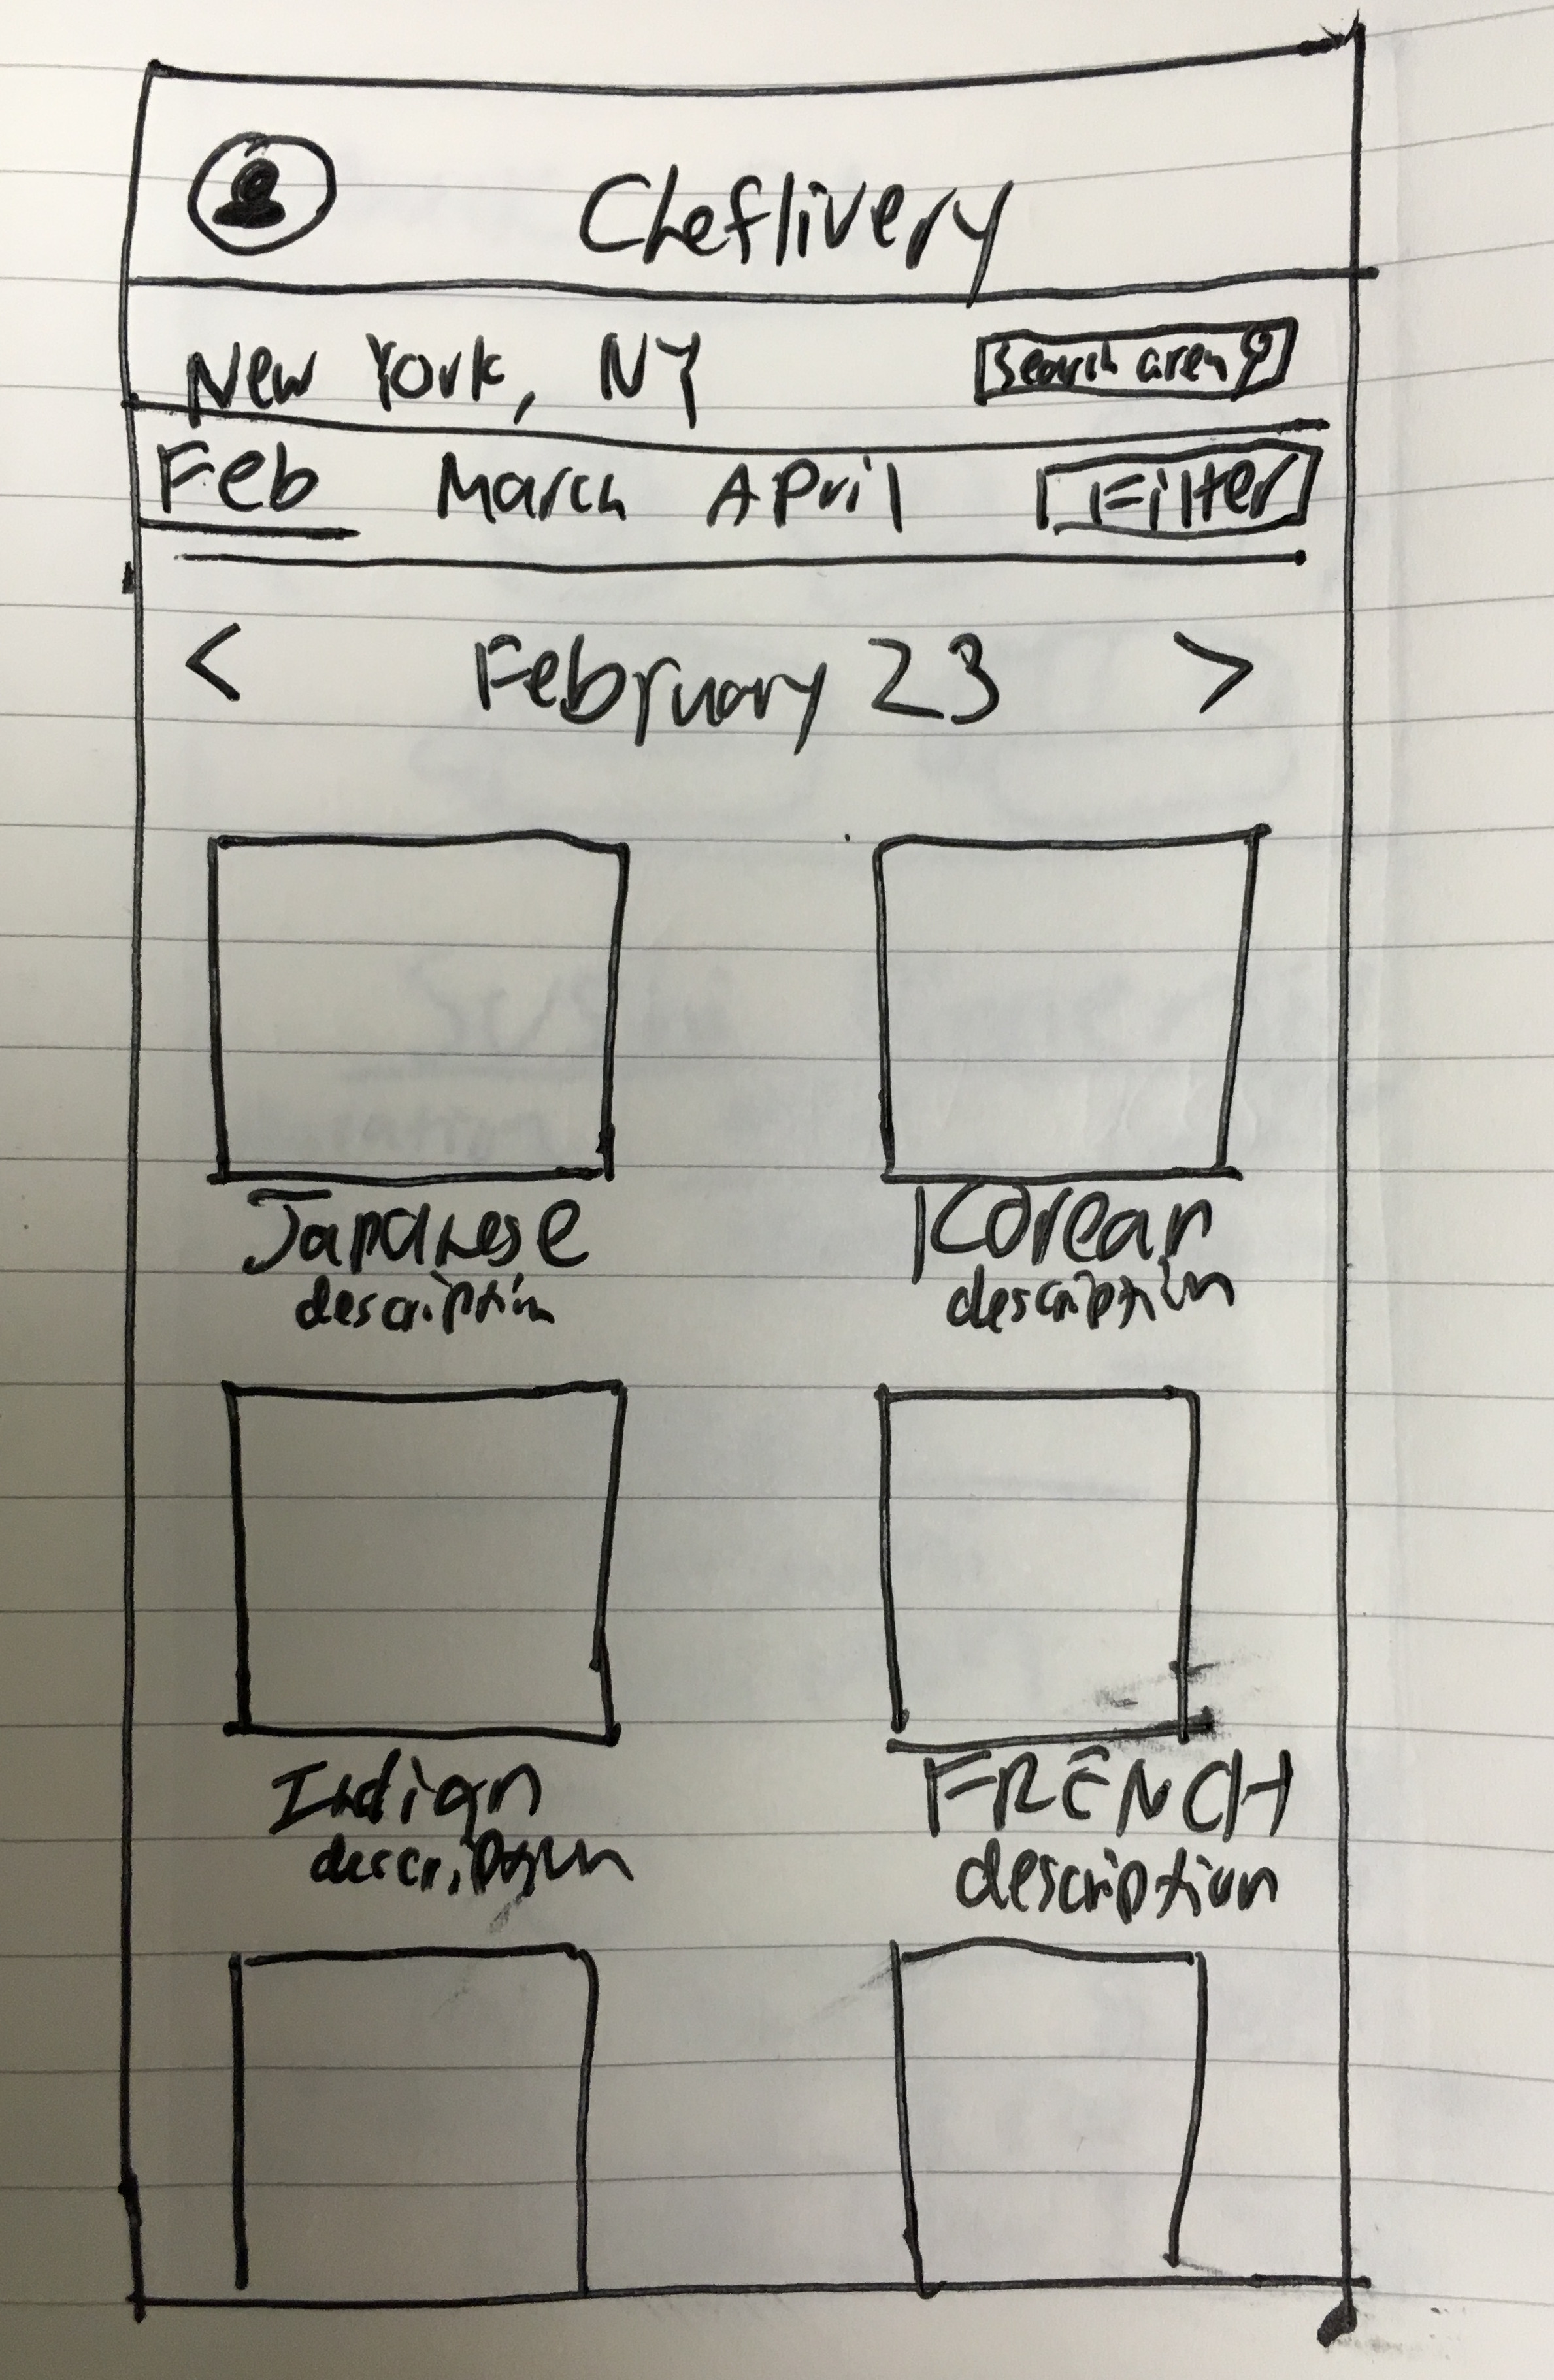 Cheflivery
New York, NY Search area
Feb March April Filter
< February 23 >
Japanese Korean
description description
Indian FRENCH
description description